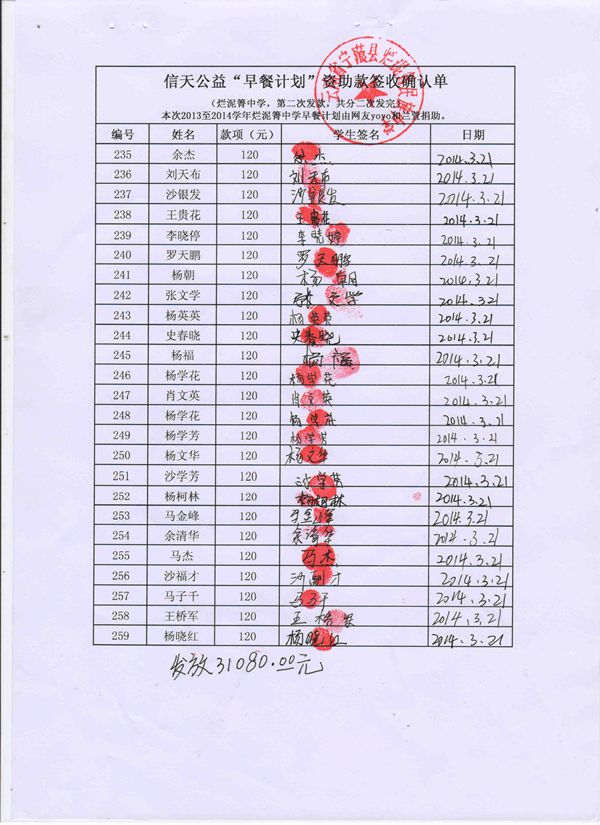 信天公益“早餐计划”资助款签收确认单
（烂泥箐中学，第二次发款，共分二次发完）
本次2013至2014学年烂泥箐中学早餐计划由网友yoyo和兰萱捐助。
编号 姓名 款项（元） 学生签名 日期
235 余杰 120 余杰 2014.3.21
236 刘天布 120 刘天布 2014.3.21
237 沙银发 120 沙银发 2014.3.21
238 王贵花 120 王贵花 2014.3.21
239 李晓停 120 李晓婷 2014.3.21
240 罗天鹏 120 罗天鹏 2014.3.21
241 杨朝 120 杨朝 2014.3.21
242 张文学 120 张文学 2014.3.21
243 杨英英 120 杨英英 2014.3.21
244 史春晓 120 史春晓 2014.3.21
245 杨福 120 杨福 2014.3.21
246 杨学花 120 杨学花 2014.3.21
247 肖文英 120 肖文英 2014.3.21
248 杨学花 120 杨学花 2014.3.21
249 杨学芳 120 杨学芳 2014.3.21
250 杨文华 120 杨文华 2014.3.21
251 沙学芳 120 沙学芳 2014.3.21
252 杨柯林 120 杨柯林 2014.3.21
253 马金峰 120 2014.3.21
254 余清华 120 余清华 2014.3.21
255 马杰 120 马杰 2014.3.21
256 沙福才 120 2014.3.21
257 马子千 120 马子千 2014.3.21
258 王桥军 120 2014.3.21
259 杨晓红 120 杨晓红 2014.3.21
发放31080.00元